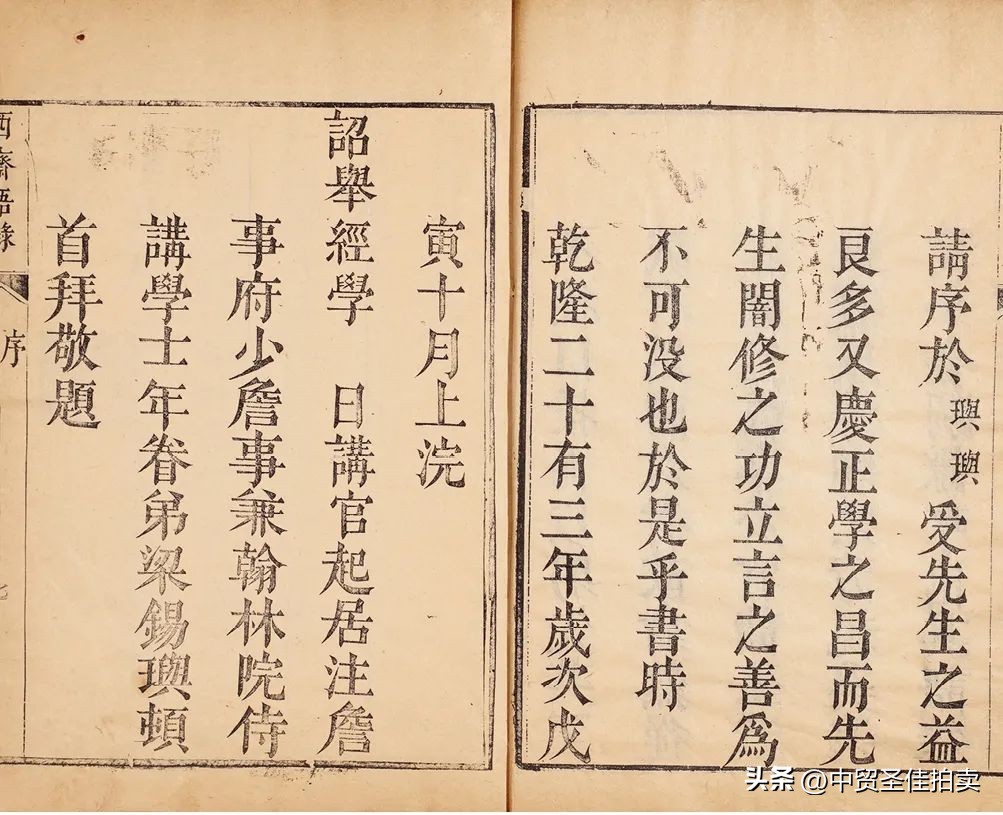 請序於璵璵受先生之益
良多又慶正學之昌而先
生闇修之功立言之善為
不可没也於是乎書時
乾隆二十有三年歲次戊
寅十月上浣
詔舉經學 日講官起居注詹
事府少詹事兼翰林院侍
講學士年眷弟梁錫璵頓
首拜敬題
西齋語錄 序
头条 @中贸圣佳拍卖